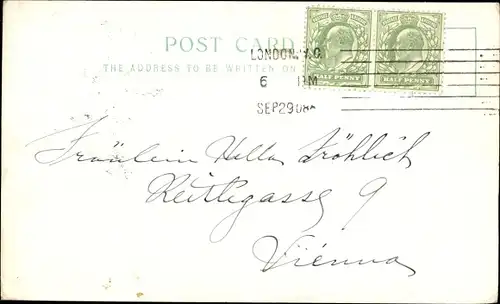 POST CARD
THE ADDRESS TO BE WRITTEN ON
LONDON. W.C.
6 PM
SEP 29 08
HALF PENNY
HALF PENNY
Fräulein Hella Fröhlich
Reitlegasse 9
Viénna